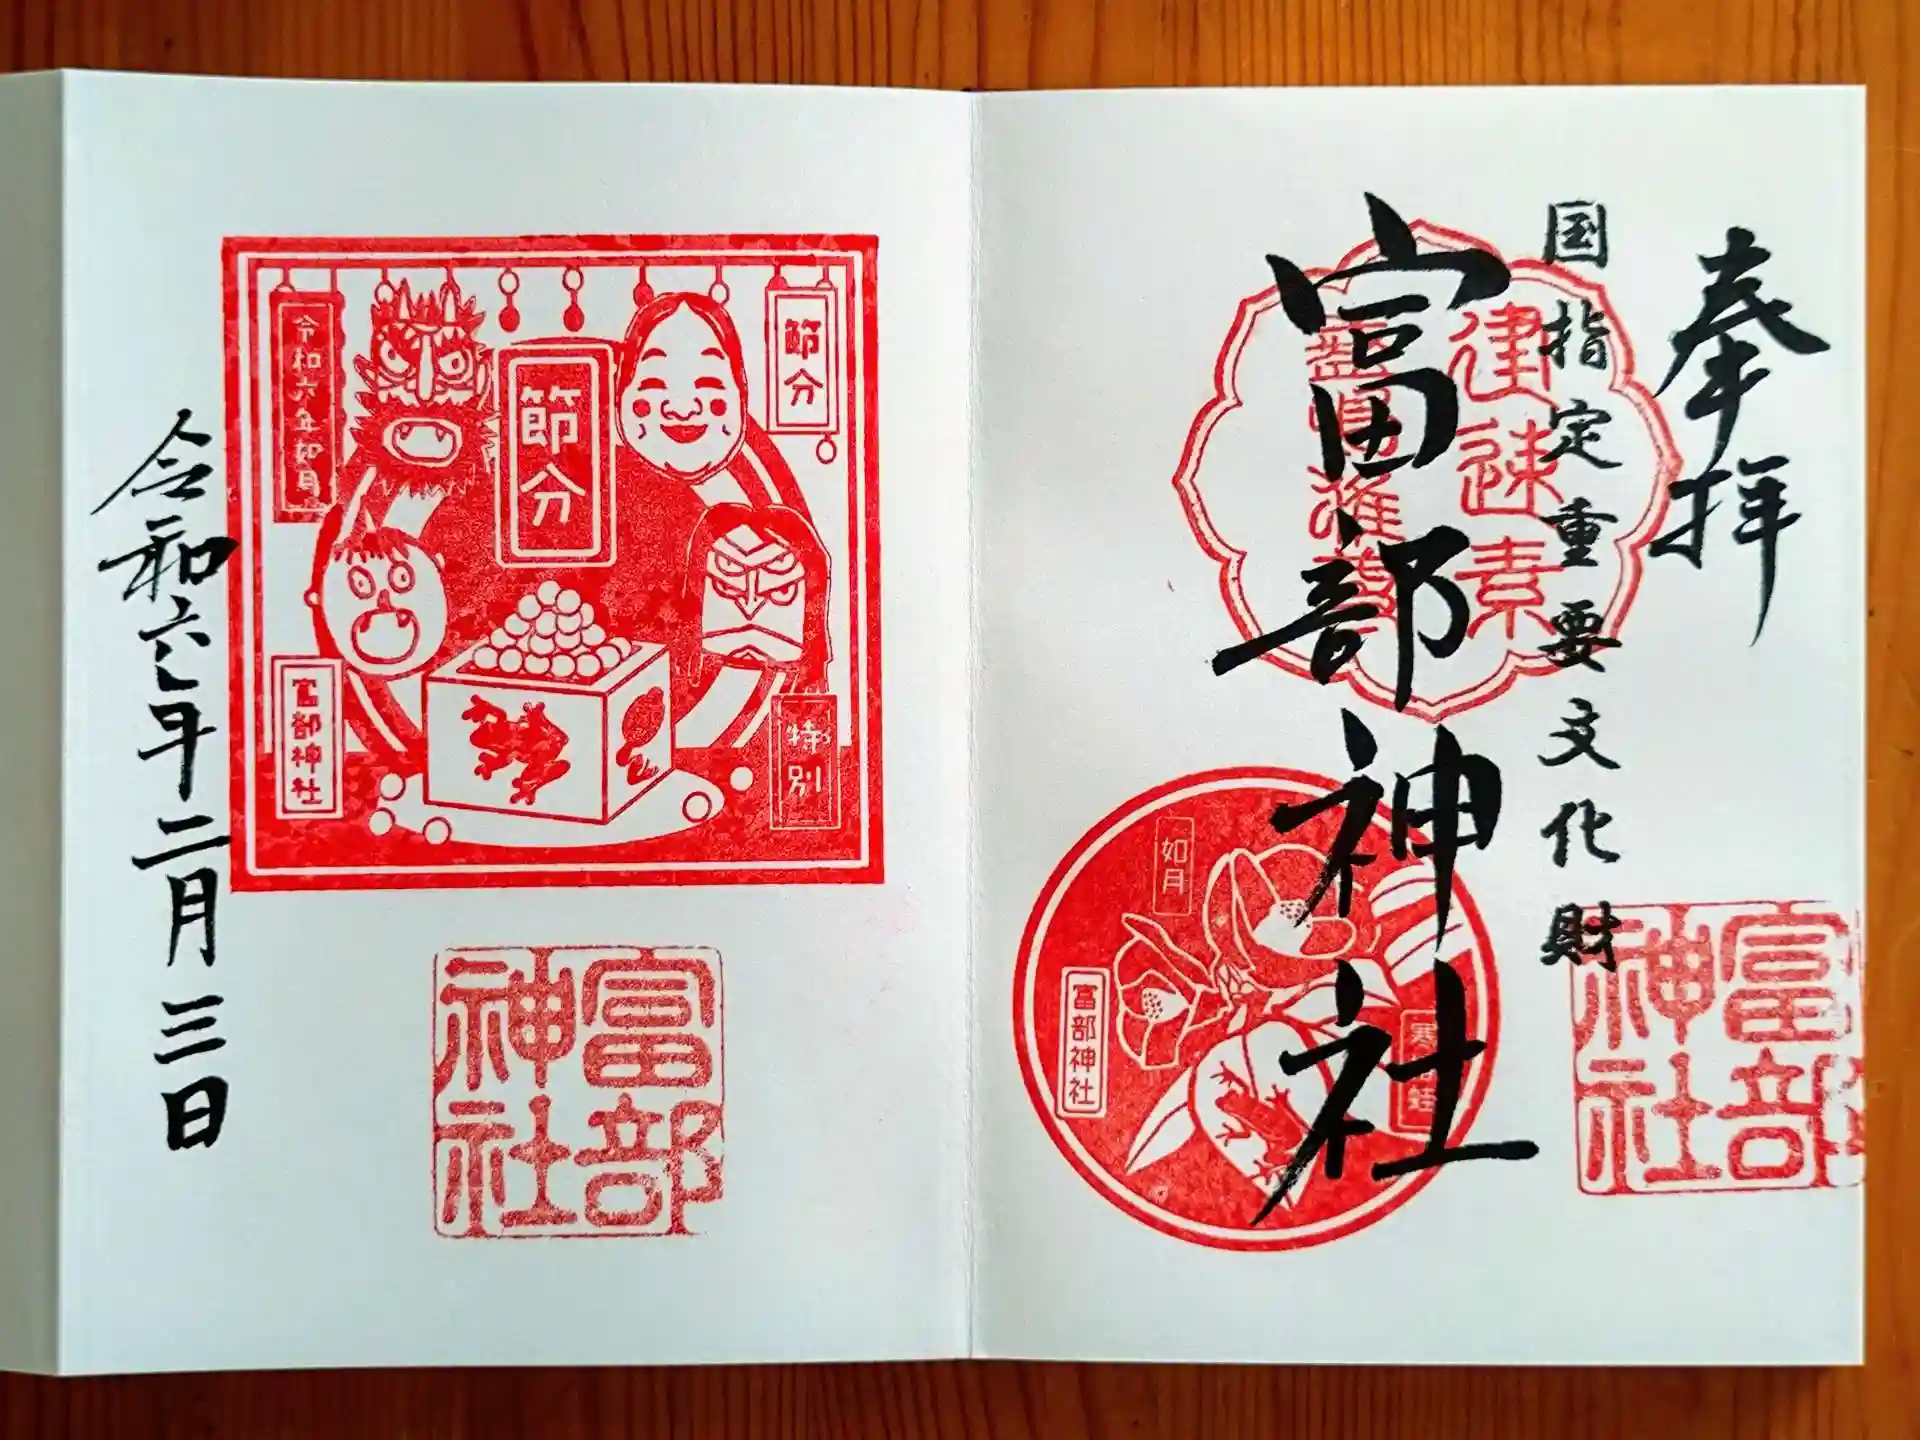 奉拝
国指定重要文化財
富部神社
建速素
富部神社
如月
富部神社
節分
節分
令和六年如月
特別
富部神社
富部神社
令和六年二月三日